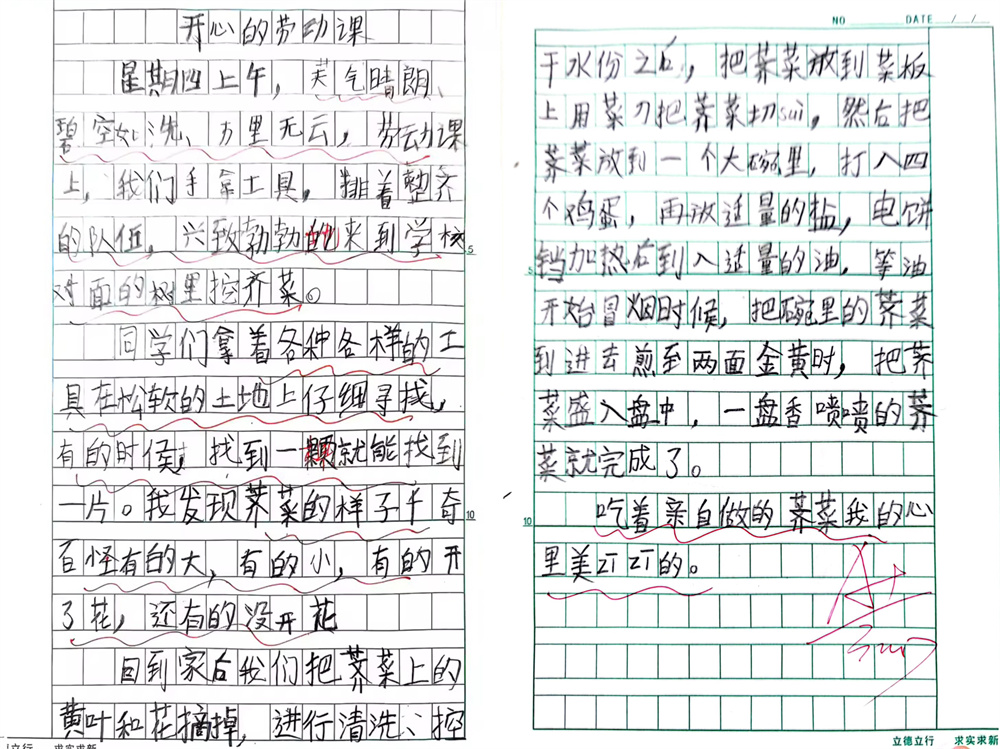 开心的劳动课
星期四上午，天气晴朗、
碧空如洗、万里无云，劳动课
上，我们手拿工具，排着整齐
的队伍，兴致勃勃的来到学校
对面的树里挖荠菜。
同学们拿着各种各样的工
具在松软的土地上仔细寻找，
有的时候，找到一颗就能找到
一片。我发现荠菜的样子千奇
百怪有的大，有的小，有的开
了花，还有的没开花
回到家后我们把荠菜上的
黄叶和花摘掉，进行清洗、控
立行 求实求新
NO DATE / /
干水份之后，把荠菜放到菜板
上用菜刀把荠菜切sui，然后把
荠菜放到一个大碗里，打入四
个鸡蛋，再放适量的盐，电饼
铛加热后到入适量的油，等油
开始冒烟时候，把碗里的荠菜
到进去煎至两面金黄时，把荠
菜盛入盘中，一盘香喷喷的荠
菜就完成了。
吃着亲自做的荠菜我的心
里美zīzī的。
A+
5
10
5
10
立德立行 求实求新